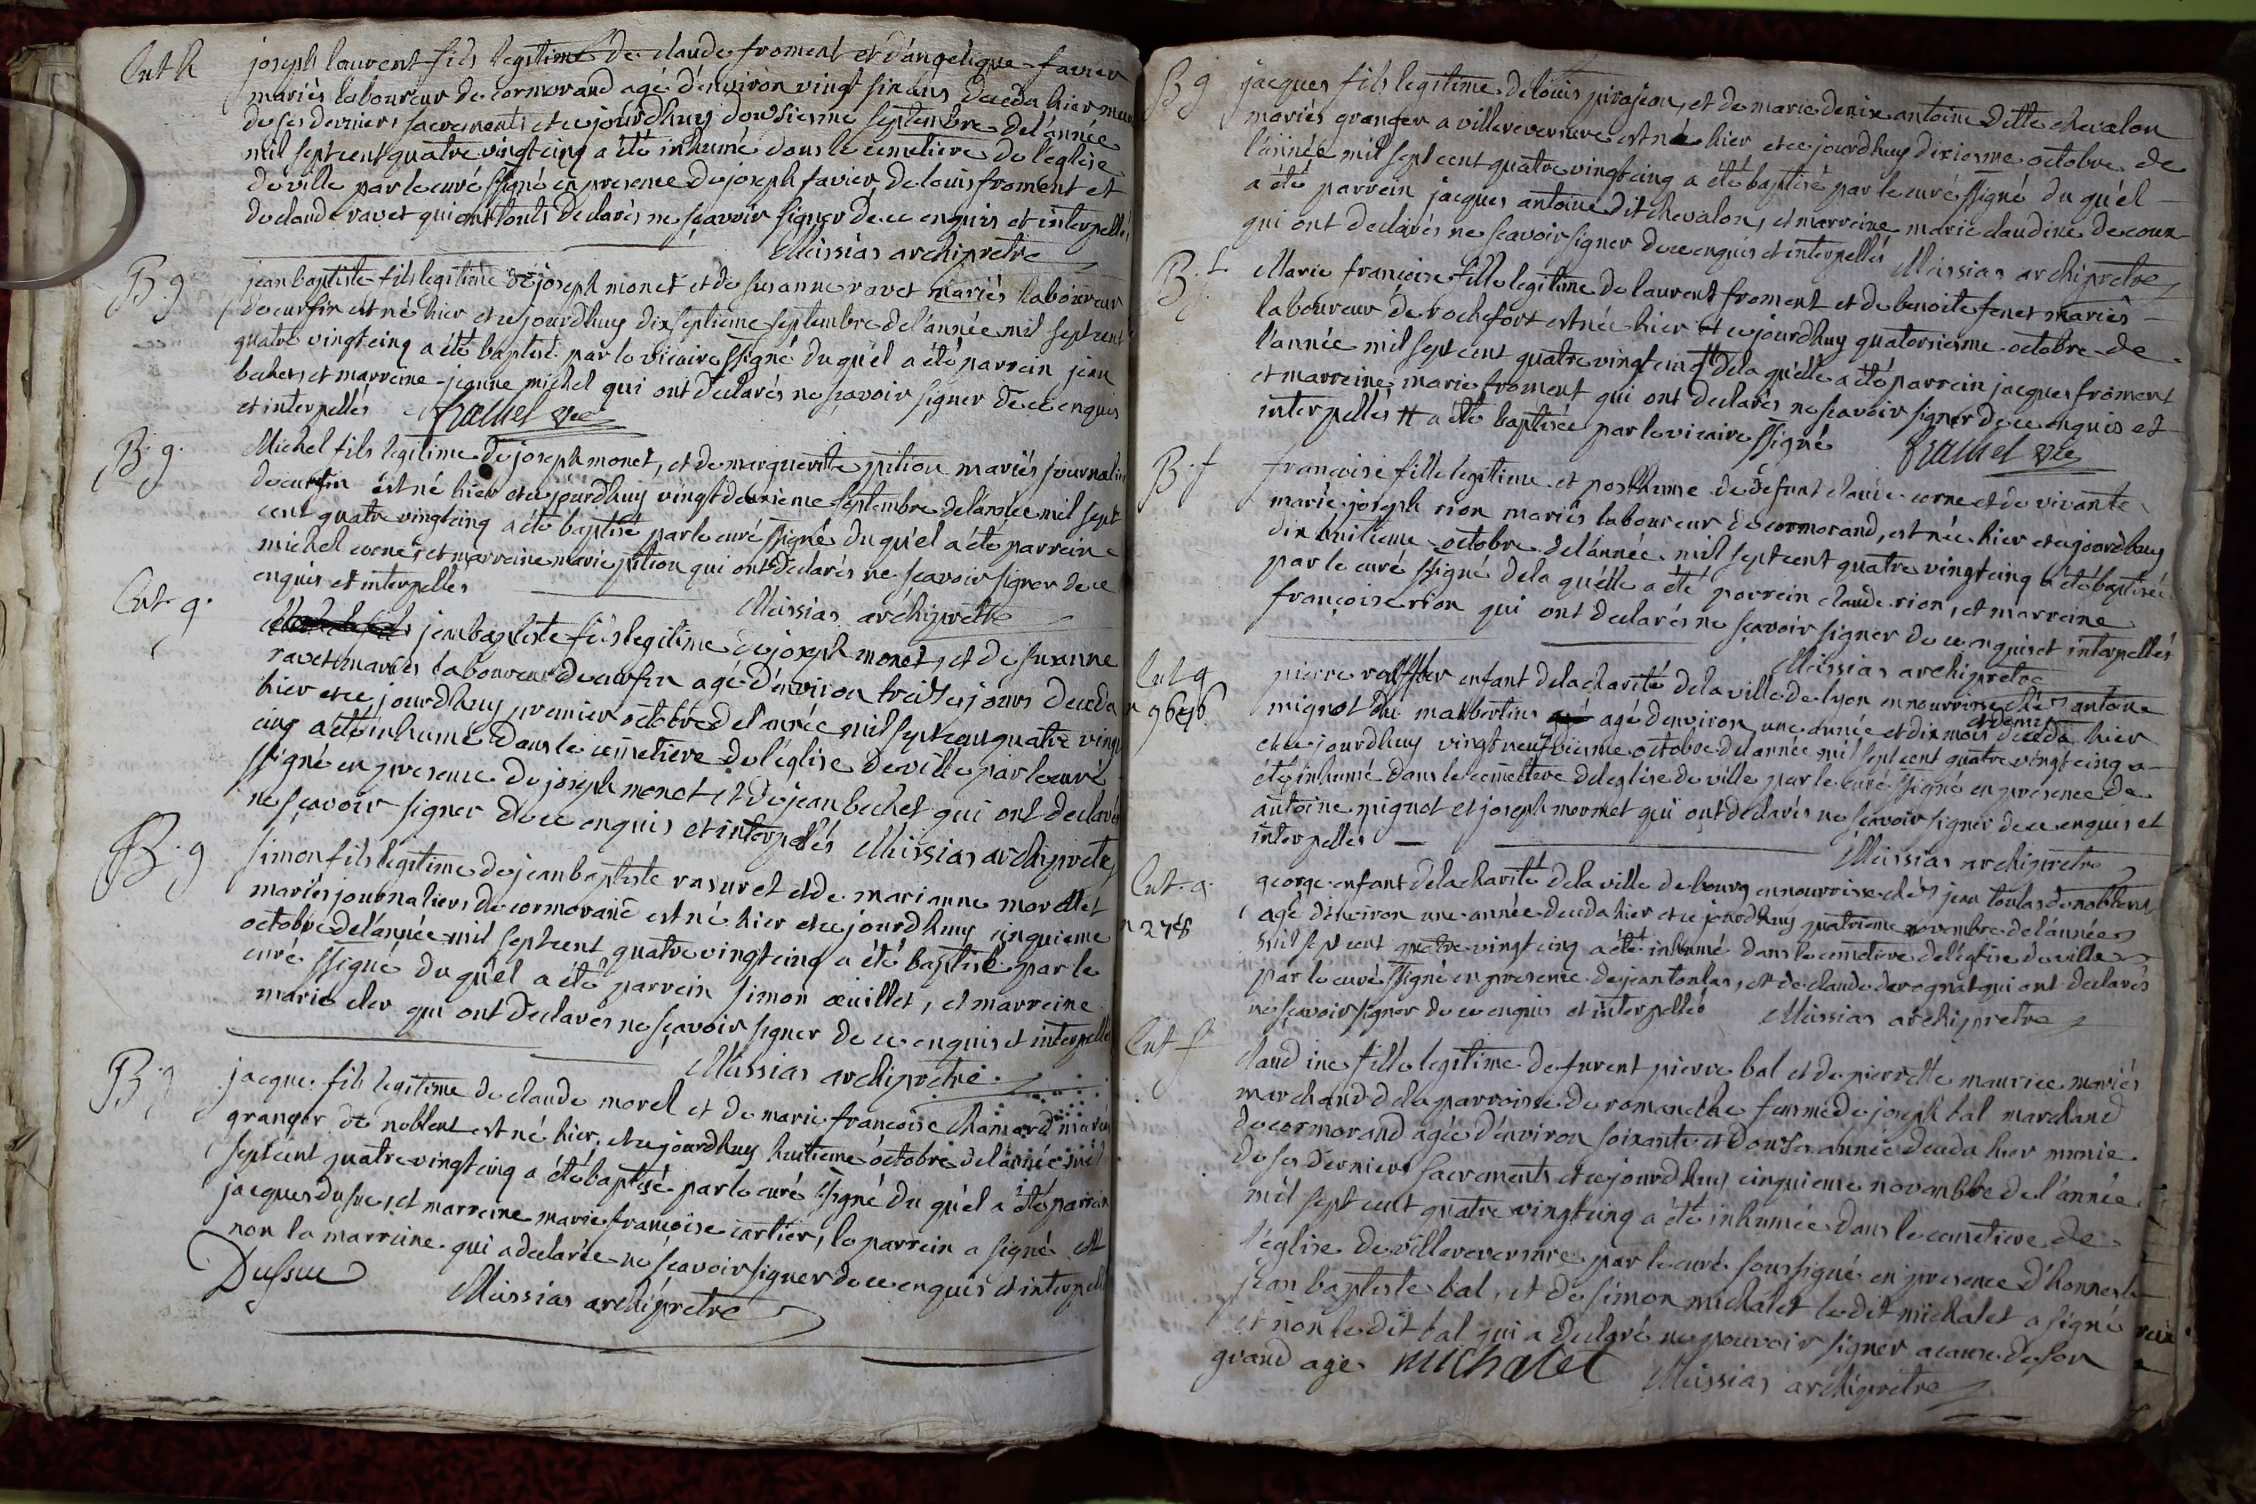 Ent h
joseph laurent fils legitime de claude froment et d'angelique favier
mariés laboureur de cormorand agé d'environ vingt six ans deceda hier muni
de ses derniers sacrements et cejourdhuy douziesme septembre de l'année
mil sept cent quatre vingt cinq a été inhumé dans le cemetiere de l'eglise
de ville par le curé ssigné en presence de joseph favier, de louis froment et
de claude ravet qui ont touts declarés ne sçavoir signer de ce enquis et interpellés
Messias archipretre
B. g
jean baptiste fils legitime de joseph monet et de susanne ravet mariés laboureur
de curfin est né hier et cejourdhuy dix septieme septembre de l'année mil sept cent
quatre vingt cinq a été baptisé par le vicaire ssigné du quel a été parrain jean
bechet, et marreine jeanne michel qui ont declarés ne sçavoir signer de ce enquis
et interpellés vic
B. g.
Michel fils legitime de joseph monet, et de marguerite pition mariés journalier
de curfin est né hier et cejourdhuy vingt deuxieme septembre de l'année mil sept
cent quatre vingt cinq a été baptisé par le curé ssigné du quel a été parrein
michel cornet et marreine marie pition qui ont declarés ne scavoir signer de ce
enquis et interpellés
Messias archipretre
Ent. g.
jean baptiste fils legitime de joseph monet, et de susanne
ravet mariés laboureur de curfin agé d'environ treize jours deceda
hier et ce jourdhuy premier octobre de l'année mil sept cent quatre vingt
cinq a été inhumé dans le cemetiere de l'église de ville par le curé
ssigné en presence de joseph monet et de jean bechet qui ont declarés
ne sçavoir signer de ce enquis et interpellés Messias archipretre
B. g
simon fils legitime de jean baptiste rasuret et de marianne morellet
mariés journaliers de cormorand est né hier et cejourdhuy cinquieme
octobre de l'année mil sept cent quatre vingt cinq a été baptisé par le
curé ssigné du quel a été parrein simon oeuillet, et marreine
marie cler qui ont declarés ne sçavoir signer de ce enquis et interpellés
Messias archipretre
B. g
jacque fils legitime de claude morel et de marie françoise chanard mariés
granger de noblent est né hier, et cejourdhuy huitieme octobre de l'année mil
sept cent quatre vingt cinq a été baptisé par le curé ssigné du quel a été parrein
jacques dusuc, et marreine marie françoise cartier, le parrein a signé et
non la marreine qui a declarée ne sçavoir signer de ce enquis et interpellé
Dussuc
Messias archipretre
B g
jacques fils legitime de louis pirajean, et de marie denise antoine ditte chevalon
mariés granger a villereversure est né hier et ce jourdhuy dixiesme octobre de
l'année mil sept cent quatre vingt cinq a été baptisé par le curé ssigné du quel
a été parrein jacques antoine dit chevalon, et marreine marie claudine decour
qui ont declarés ne scavoir signer de ce enquis et interpellés Messias archipretre
B. f.
Marie françoise fille legitime de laurent froment et de benoite fenet mariés
laboureur de rochefort est née hier et cejourdhuy quatorsiesme octobre de
l'année mil sept cent quatre vingt cinq # de la quelle a été parrein jacques froment
et marreine marie froment qui ont declarés ne scavoir signer de ce enquis et
interpellés # a été baptisée par le vicaire ssigné vic
B. f
françoise fille legitime et posthume de defunt claude corne et de vivante
marie joseph rion mariés laboureur de cormorand, est née hier et cejourdhuy
dix huitieme octobre de l'année mil sept cent quatre vingt cinq a été baptisée
par le curé ssigné de la quelle a été parrein claude rion, et marreine
françoise rion qui ont declarés ne scavoir signer de ce enquis et interpellés
Messias archipretre
Ent g
pierre enfant de la charité de la ville de lyon en nourrisse chés antoine
mignot du agé d'environ une année et dix mois et demi deceda hier
et ce jourdhuy vingt neufviesme octobre de l'année mil sept cent quatre vingt cinq a
été inhumé dans le cemettiere de l'eglise de ville par le curé ssigné en presence de
antoine mignot et joseph mormet qui ont declarés ne scavoir signer de ce enquis et
interpellés
Messias archipretre
Ent. g.
n 278
george enfant de la charité de la ville de bourg en nourrisse chés jean toulas de noblent
agé d'environ une année deceda hier et ce jourdhuy quatrieme novembre de l'année
mil sept cent quatre vingt cinq a été inhumé dans le cemetiere de l'église de ville
par le curé ssigné en presence de jean toulas, et de claude derognat qui ont declarés
ne sçavoir signer de ce enquis et interpellés Messias archipretre
Ent f
claudine fille legitime de furent pierre bal et de pierrette maurice mariés
marchand de la parroisse de romaneche femme de joseph bal marchand
de cormorand agée d'environ soixante et douse année deceda hier munie
de ses derniers sacrements et cejourdhuy cinquieme novembre de l'année
mil sept cent quatre vingt cinq a été inhumée dans le cemetiere de
l'eglise de villereversure par le curé soussigné en presence d'honneste
jean baptiste bal, et de simon michalet le dit michalet a signé
et non le dit bal qui a declaré ne pouvoir signer a cause de son
grand age. michalet
Messias archipretre